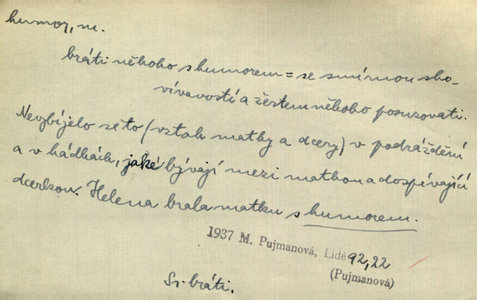 humor, m.
bráti někoho s humorem = se smírnou sho-
vívavostí a žertem někoho posuzovati.
Nevybíjelo se to (vztah matky a dcery) v podráždění
a v hádkách, jaké bývají mezi matkou a dospívající
dcerkou. Helena brala matku s humorem.
1937 M. Pujmanová, Lidé 92,22
(Pujmanová)
Sr. bráti.